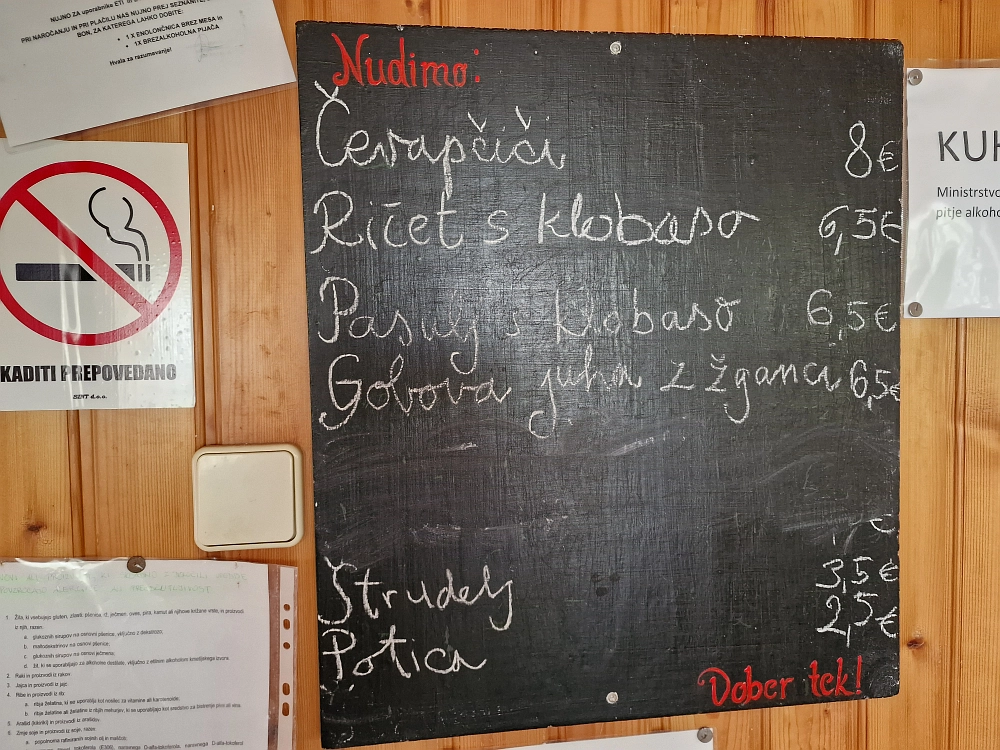 NUJNO ZA uporabnike ETI
PRI NAROČANJU IN PRI PLAČILU NAS NUJNO PREJ SEZNANITE,
BON, ZA KATEREGA LAHKO DOBITE:
• 1 X ENOLONČNICA BREZ MESA in
• 1X BREZALKOHOLNA PIJAČA
Hvala za razumevanje!
KADITI PREPOVEDANO
SINT d.o.o.
Nudimo:
Čevapčiči 8€
Ričet s klobaso 6,5€
Pasulj s klobaso 6,5€
Gobova juha z žganci 6,5€
Štrudelj 3,5€
Potica 2,5€
Dober tek!
KUH
Ministrstvo
pitje alkoho
1. Žita, ki vsebujejo gluten,
iz njih, razen:
a. glukoznih sirupov na osnovi pšenice, vključno z dekstrozo;
b. maltodekstrinov na osnovi pšenice;
c. glukoznih sirupov na osnovi ječmena;
d. žit, ki se uporabljajo za alkoholne destilate, vključno z etilnim alkoholom kmetijskega izvora
2. Raki in proizvodi iz rakov
3. Jajca in proizvodi iz jajc
4. Ribe in proizvodi iz rib
a. ribje želatine, ki se uporablja kot nosilec za vitamine ali karotenoide;
5. Arašidi (kikiriki) in proizvodi iz arašidov
6. Zrnje soje in proizvodi iz soje, razen: